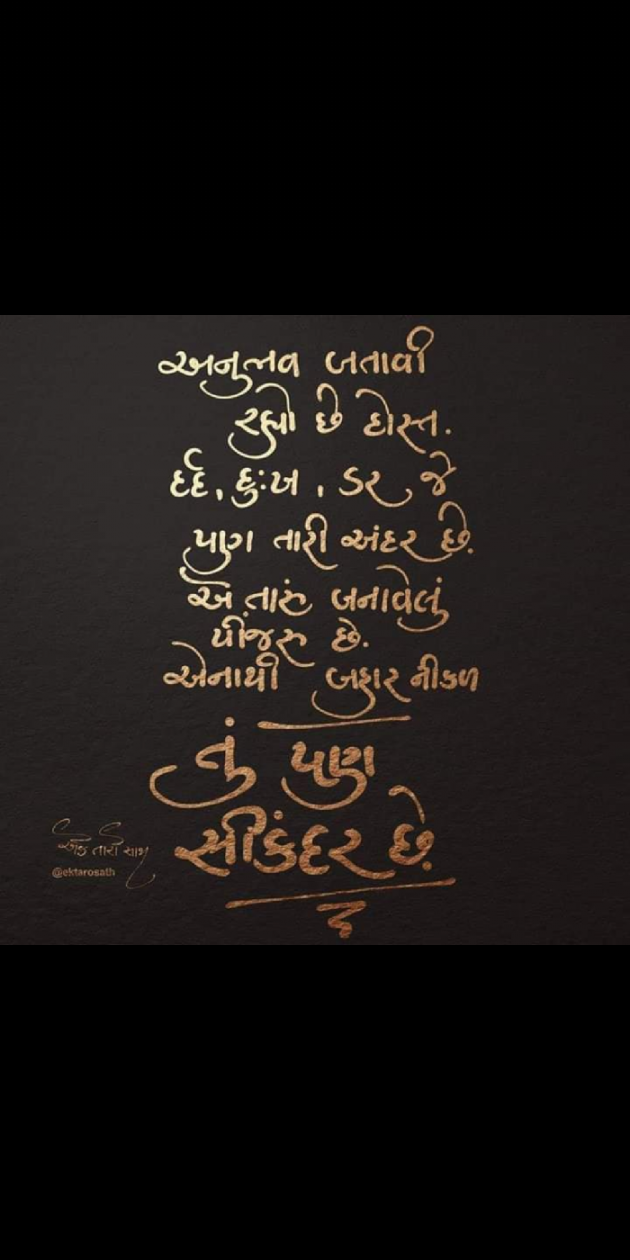 અનુભવ બતાવી
રહ્યો છે દોસ્ત.
દર્દ, દુઃખ, ડર જે
પણ તારી અંદર છે.
એ તારું બનાવેલું
પીંજરુ છે.
એનાથી બહાર નીકળ
તું પણ
સીકંદર છે.
એક તારો સાથ
@ektarosath